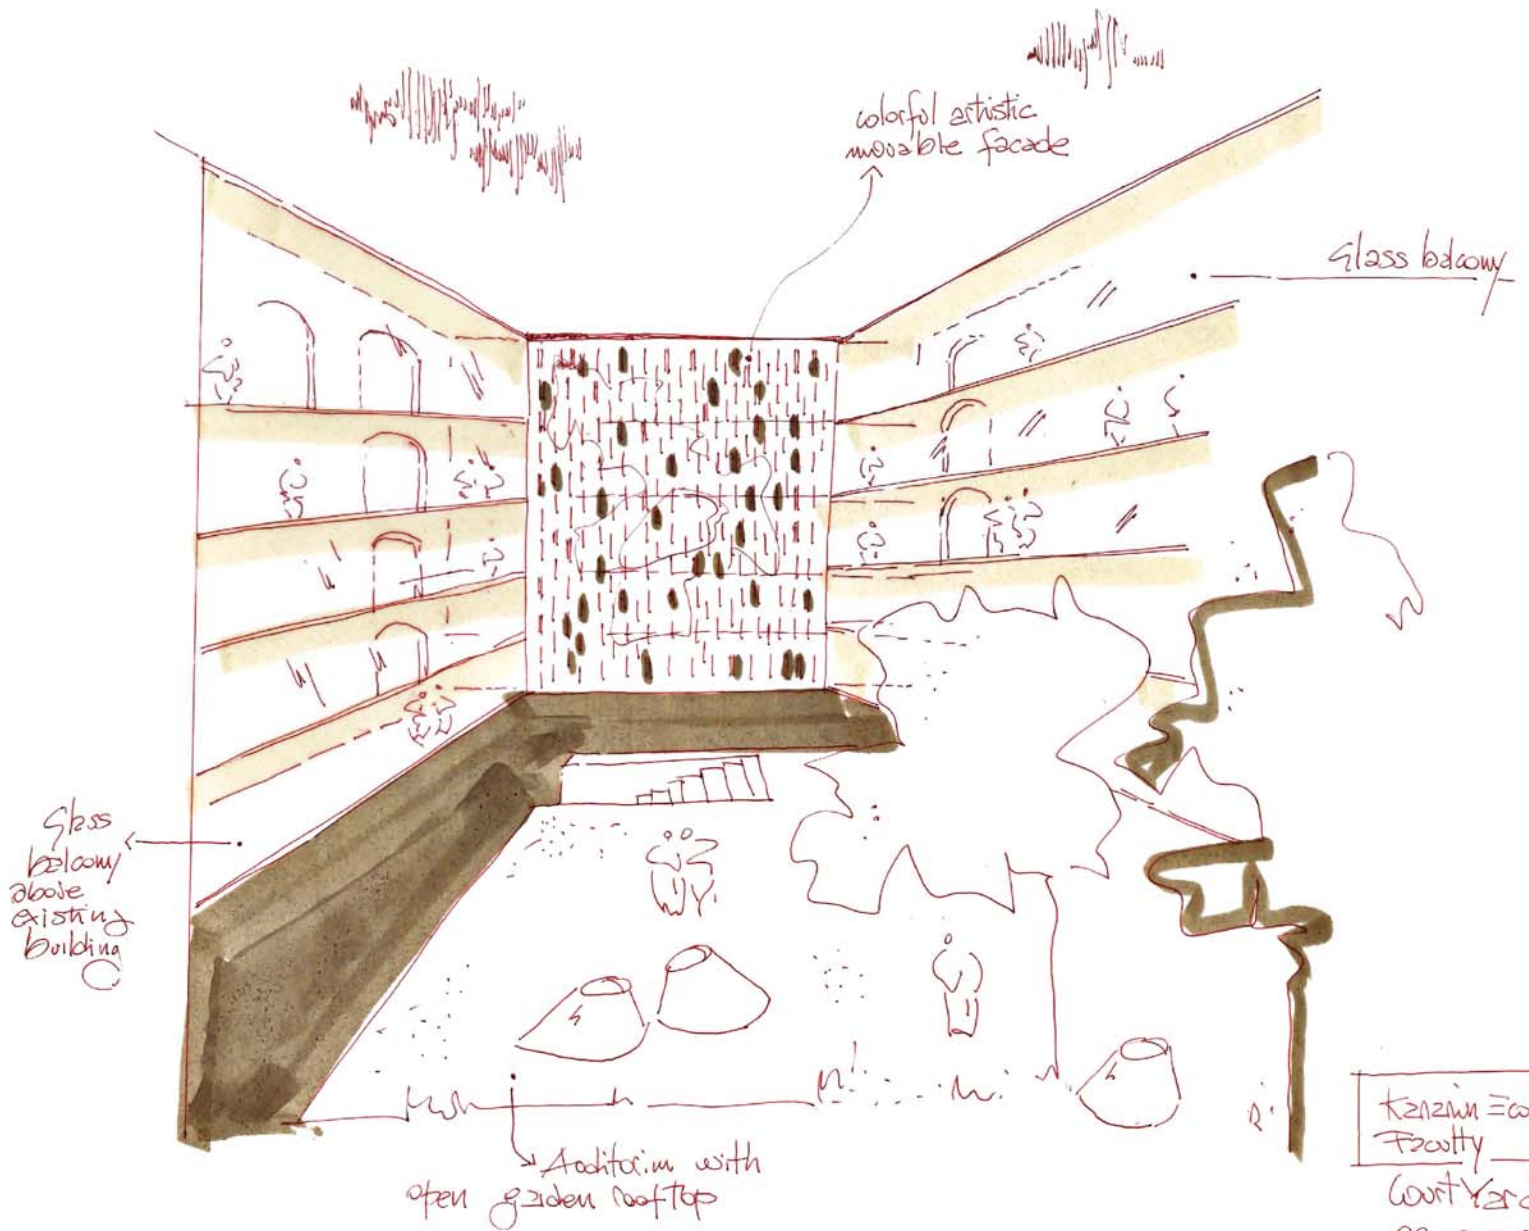 colorful artistic
movable facade
Glass balcony
Glass
balcony
above
existing
building
Auditorim with
open garden rooftop
Faculty
CourtYard